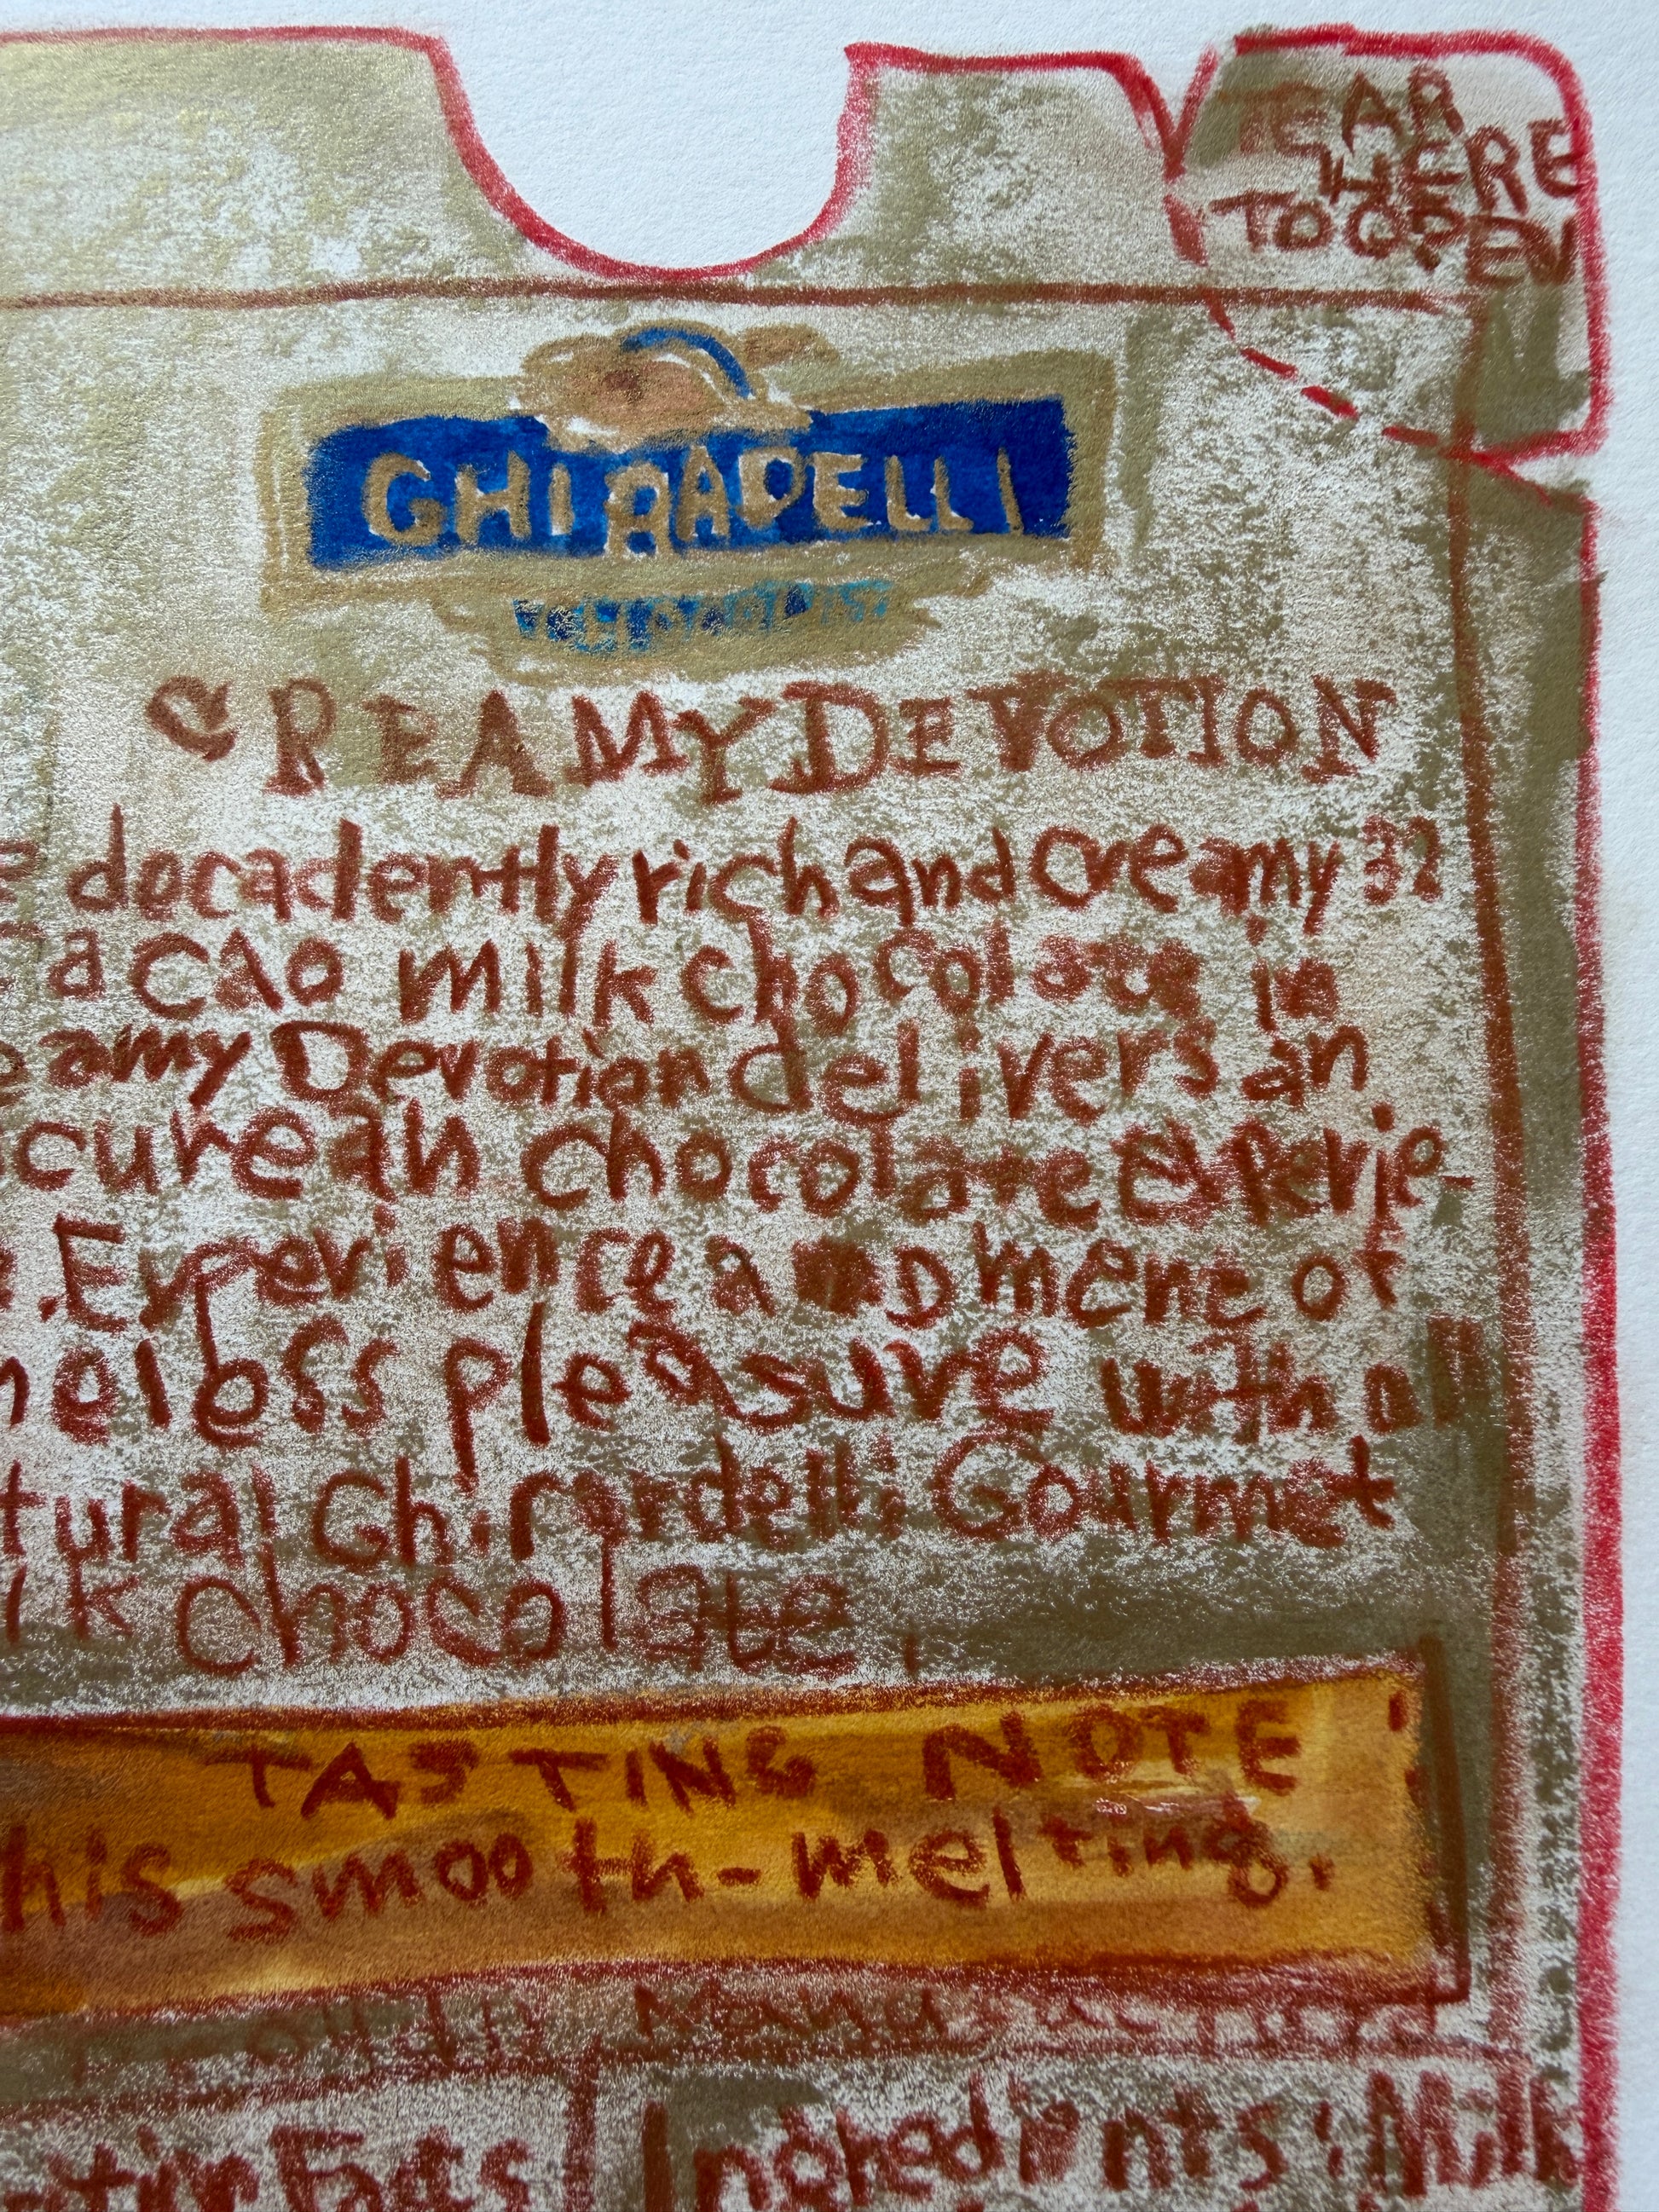 TEAR
HERE
TO OPEN
GHIRADELLI
CREAMY DEVOTION
decadently rich and creamy 32
cacao milk chocolate in
eamy Devotion delivers an
curean chocolate experie-
. Experience a moment of
meless pleasure with all
tural Ghirardelli Gourmet
lk chocolate.
TASTING NOTE
his smooth-melting.
Facts
Milk